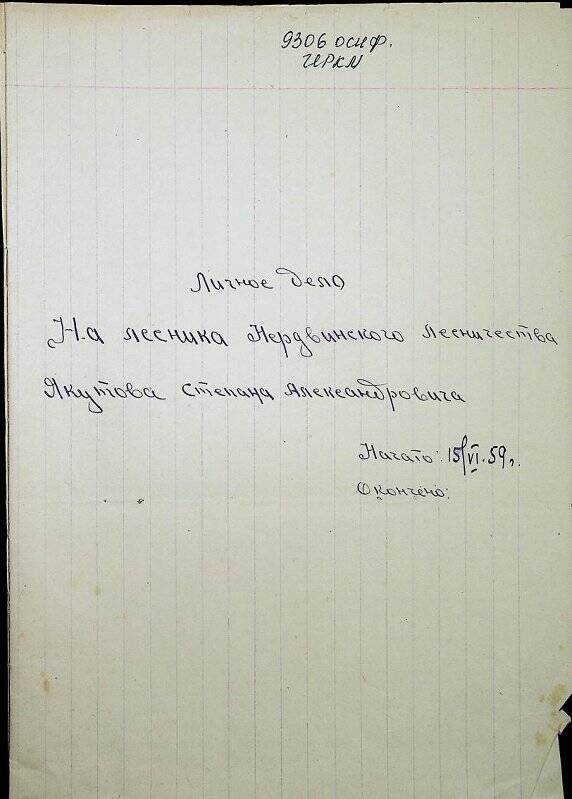 9306 осиф.
ЧРКМ
Личное дело
На лесника Нердвинского лесничества
Якутова Степана Александровича
Начато: 15/VI-59г.
Окончено: